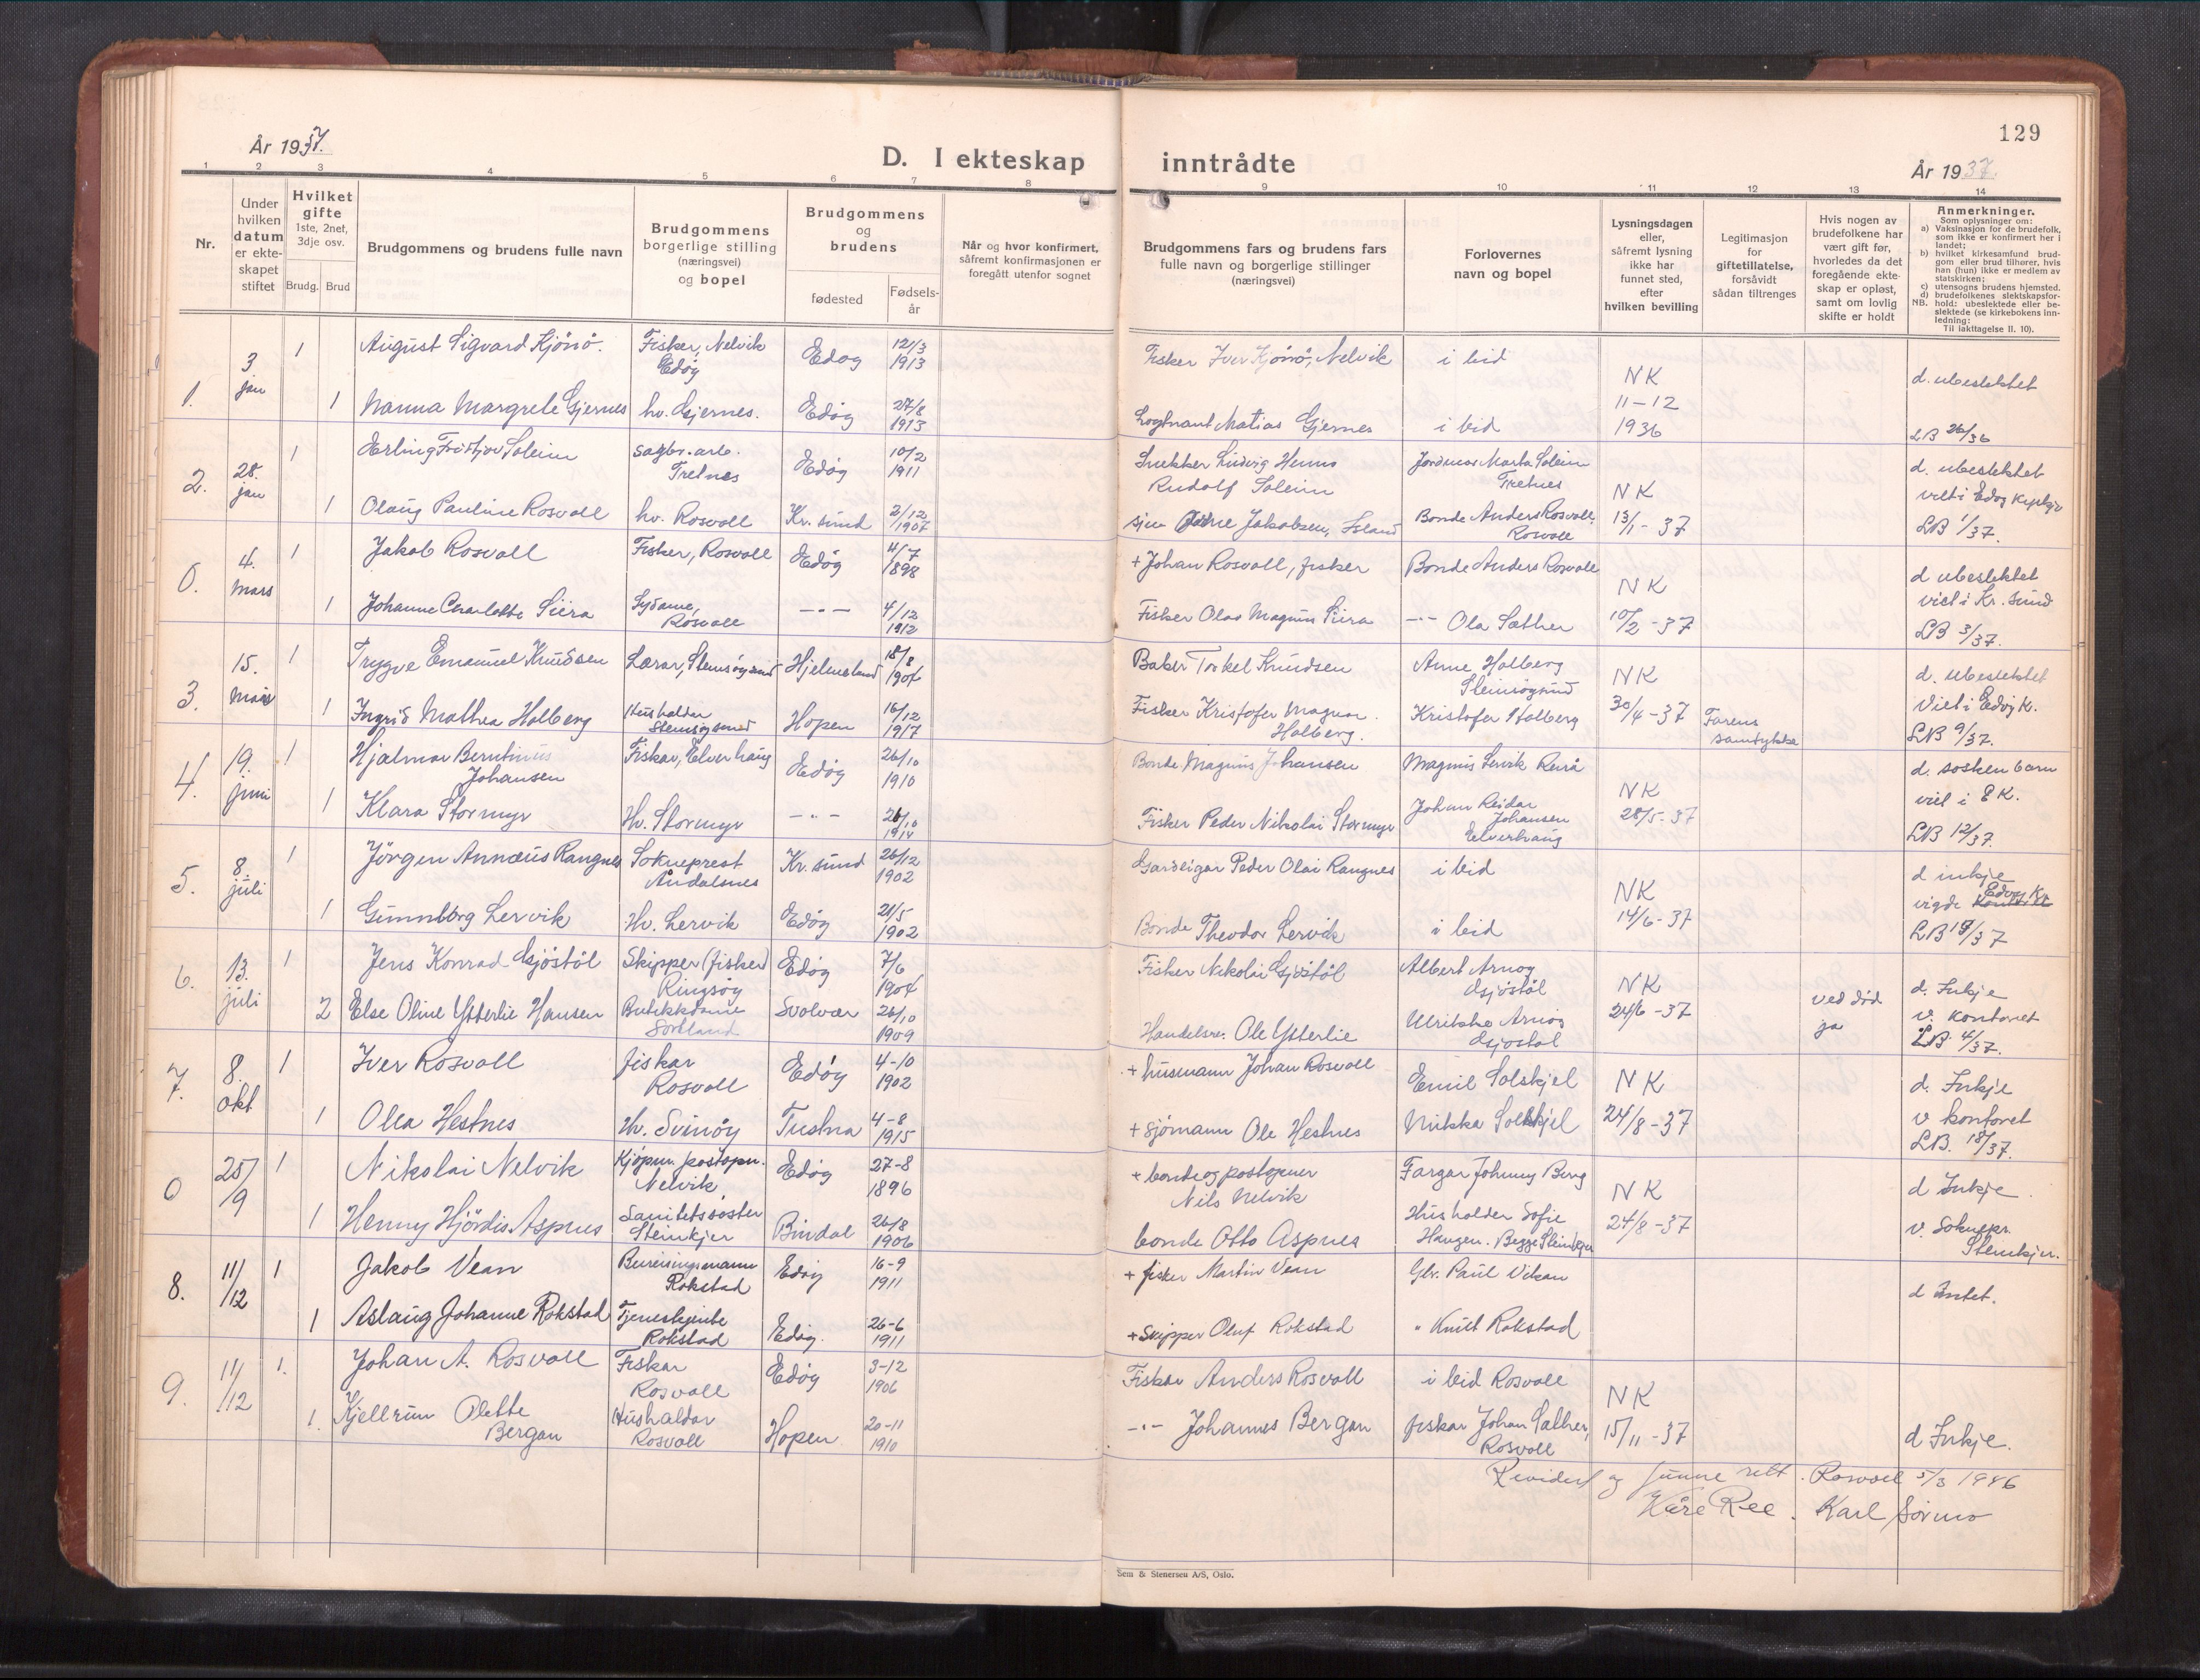 129
År 1937.
D. I ekteskap inntrådte
År 1937.
1 2 3 4 5 6 7 8 9 10 11 12 13 14
Nr.
Under hvilken datum er ekte-skapet stiftet
Hvilket gifte 1ste, 2net, 3dje osv.
Brudg. Brud
Brudgommens og brudens fulle navn
Brudgommens borgerlige stilling (næringsvei) og bopel
Brudgommens og brudens
fødested
Fødsels-år
Når og hvor konfirmert, såfremt konfirmasjonen er foregått utenfor sognet
Brudgommens fars og brudens fars fulle navn og borgerlige stillinger (næringsvei)
Forlovernes navn og bopel
Lysningsdagen eller, såfremt lysning ikke har funnet sted, efter hvilken bevilling
Legitimasjon for giftetillatelse, forsåvidt sådan tiltrenges
Hvis nogen av brudefolkene har vært gift før, hvorledes da det foregående ekte-skap er opløst, samt om lovlig skifte er holdt
Anmerkninger.
Som oplysninger om:
a) Vaksinasjon for de brudefolk, som ikke er konfirmert her i landet;
b) hvilket kirkesamfund brud-gom eller brud tilhører, hvis han (hun) ikke er medlem av statskirken;
c) utensogns brudens hjemsted.
d) brudefolkenes slektskapsfor-hold: ubeslektede eller be-slektede (se kirkebokens inn-ledning:
NB.
Til iakttagelse II. 10).
1. 3 jan 1 August Sigvard Kjönö. Fisker, Nelvik Edøy Edøy 12/3 1913 Fisker Iver Kjönö, Nelvik i bid NK 11-12 1936 d. ubeslektet
1 Nanna Margrete Gjernes hv. Gjernes. Edøy 27/8 1913 Matias Gjernes i bid LB 26/36
2. 28. jan 1 Erling Fritjov Soleim sagbr. arb. Tretnes Edøy 10/2 1911 Snekker Ludvig Henns Rudolf Soleim Jordmor Marta Soleim Tretnes NK 13/1-37 d. ubeslektet
1 Olaug Pauline Rosvoll hv. Rosvoll Kr. sund 2/12 1907 Jakobsen, Island Bonde Anders Rosvoll. Rosvoll LB 1/37.
0. 4. mars 1 Jakob Rosvoll Fisker, Rosvoll Edøy 4/7 1898 + Johan Rosvoll, fisker Bonde Anders Rosvoll NK 10/2-37 d ubeslektet viet i Kr. sund
1 Johanne Charlotte Siira Sydame, Rosvoll -"- 4/12 1912 Fisker Olav Magnus Siira -"- Ola Sæther LB 3/37.
3. 15. mai 1 Trygve Emanuel Knudsen Lærar, Stemsøysund Hjelmeland 18/8 1904 Baker Torkel Knudsen Anne Holberg Stemsøysund NK 30/4-37 d. ubeslektet Viet i Edøy k.
1 Ingrid Mathea Holberg Husholder Stemsøysund Hopen 16/12 1917 Fisker Kristofer Magnar. Holberg. Kristofer Holberg Farens samtykke LB 9/37.
4. 19. juni 1 Hjalmar Berntinus Johansen Fiskar, Elverhaug Edøy 26/10 1910 Bonde Magnus Johansen Magnus Lervik NK 28/5-37 d. søsken barn viet i EK.
1 Klara Stormyr Hv. Stormyr -"- 1914 Fisker Peder Nikolai Stormyr Johan Reidar Johansen Elverhaug LB 12/37.
5. 8. juli 1 Jörgen Annæus Rangnes Sokneprest Åndalsnes Kr. sund 26/12 1902 Gardeigar Peder Olai Rangnes i bid NK 14/6-37 d inkje vigde Edøy K
1 Gunnborg Lervik Hv. Lervik Edøy 21/5 1902 Bonde Theodor Lervik i bid
6. 13. juli 1 Jens Konrad Gjöstöl Skipper (fisker) Ringsøy Edøy 7/6 1904 Fisker Nikolai Gjöstöl Albert Arnoy Gjöstöl NK 24/6-37 d. Inkje v. kontoret
2 Else Oline Ytterlie Hansen Butikkdame Sortland Svolvær 26/10 1909 Handelsre. Ole Ytterlie Ulrikke Arnoy Gjöstöl ved död ja
7. 8. okt 1 Iver Rosvoll fiskar Rosvoll Edöy 4-10 1902 + husmann Johan Rosvoll Emil Solskjel NK 24/8-37 d. Inkje v kontoret
1 Olea Hestnes Hv. Svinöy Tustna 4-8 1915 + sjömann Ole Hestnes Mikka Solskjel LB. 18/37.
0 25/9 1 Nikolai Nelvik Kjöpm. postopn. Nelvik Edöy 27-8 1896 + bonde og postopner Nils Nelvik Fargar Johnny Berg NK 24/8-37 d Inkje.
1 Henny Hjördis Aspnes Sanitetssöster Steinkjer Bindal 26/8 1906 bonde Otto Aspnes Husholder Sofie Haugen. Begge Steinkjer v. Soknepr. Steinkjer.
8. 11/12 1 Jakob Vean Bureisingsmann Rokstad Edöy 16-9 1911 + fisker Martin Vean Gbr. Paul Vikan d Intet.
1 Aslaug Johanne Rokstad Tjenestejente Rokstad Edöy. 26-6 1911 + Skipper Oluf Rokstad " Knut Rokstad
9. 11/12 1. Johan A. Rosvoll Fiskar Rosvoll Edöy 3-12 1906 Fiskar Anders Rosvoll i bid Rosvoll NK 15/11-37
1. Kjellrun Olette Bergan Hushaldar Rosvoll Hopen 20-11 1910 -"- Johannes Bergan fiskar Johan Sæther, Rosvoll d Inkje.
Revidert og funne rett. Rosvoll 5/3 1946
Kåre Ree. Karl Sörmo
Sem & Stenersen A/S, Oslo.